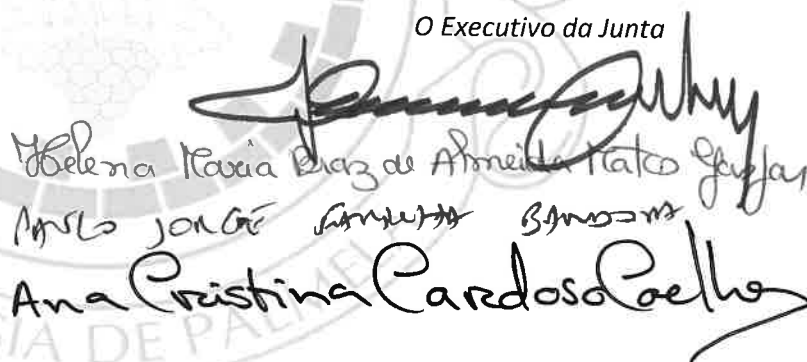 O Executivo da Junta
Helena Maria Braz de Almeida Matos
Paulo Jorge
Ana Cristina Cardoso Coelho
GIA DE PALME